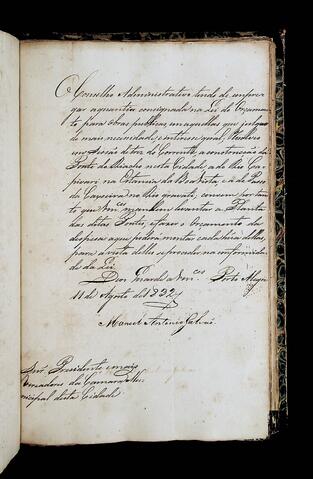 O Conselho Administrativo tendo de empre-
gar a quantia consignada na Lei do Orçamen-
to para obras publicas em aquellas que julgar
de mais necessidade, e interesse geral,
em Sessão de 10 do Corrente, a construcção da
Ponte do Riacho nesta Cidade, a do Rio Ca-
pivari na Estancia da Boa Vista, e a do Passo
da Cavalheira no Rio convem por tan-
to que Vm.ces mandem levantar a Planta
das ditas Pontes, e fazer o Orçamento da
despeza a que poderá montar cada huma dellas,
para á vista delles se proceder na conformida-
de da Lei.
Deos Guarde a Vm.ces Porto Alegre
11 de Agosto de 1832
Manoel Antonio Galvão
Snr.es Presidente e mais
Vereadores da Camara Mu-
nicipal desta Cidade